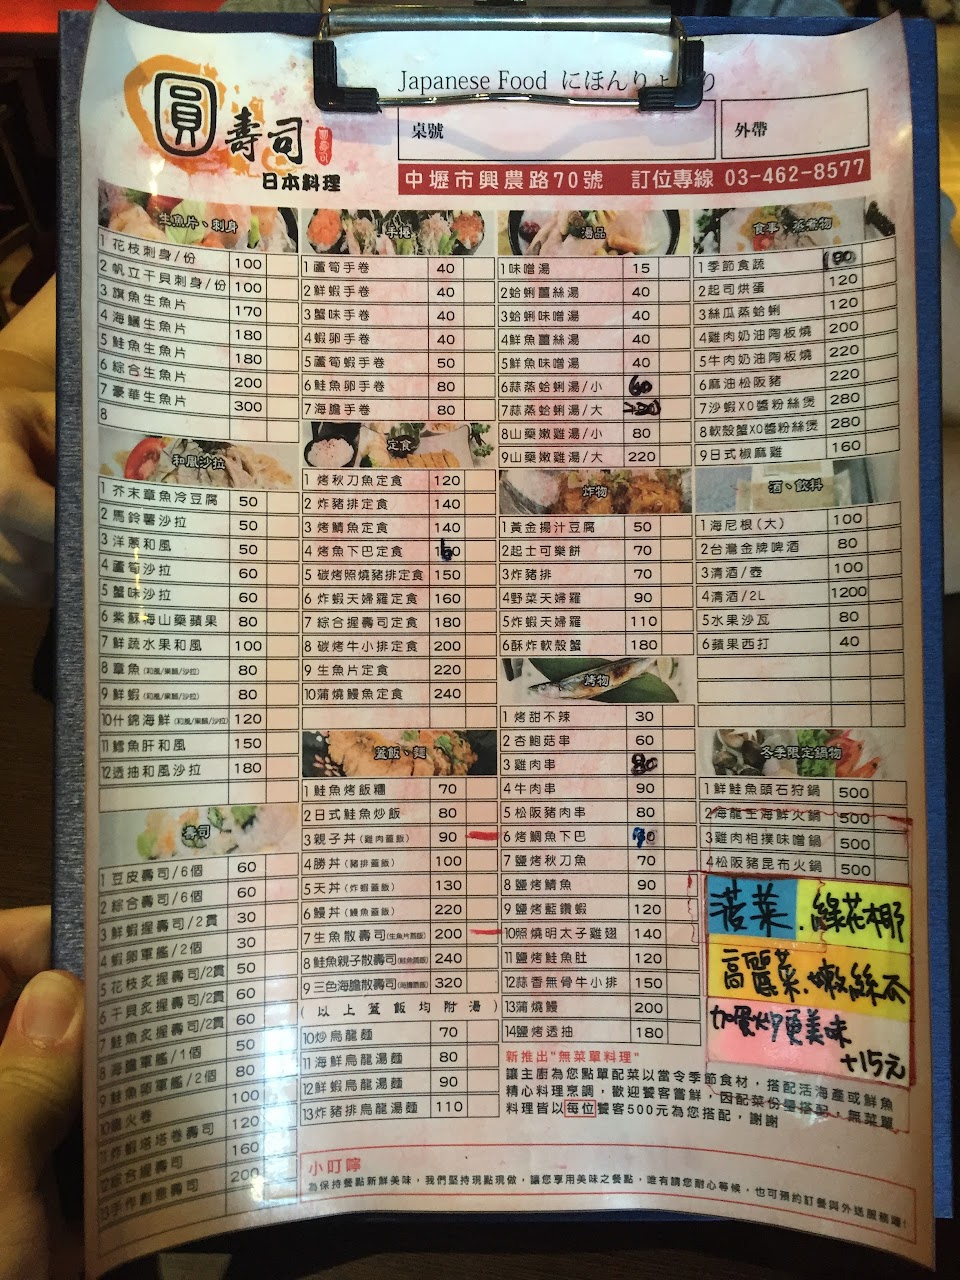 Japanese Food にほんりょ
圓壽司
日本料理
桌號
外帶
中壢市興農路70號 訂位專線 03-462-8577
生魚片、刺身
1 花枝刺身/份 100
2 帆立干貝刺身/份 100
3 旗魚生魚片 170
4 海鱺生魚片 180
5 鮭魚生魚片 180
6 綜合生魚片 200
7 豪華生魚片 300
8
和風沙拉
1 芥末章魚冷豆腐 50
2 馬鈴薯沙拉 50
3 洋蔥和風 50
4 蘆筍沙拉 60
5 蟹味沙拉 60
6 紫蘇海山藥蘋果 80
7 鮮蔬水果和風 100
8 章魚(和風/果醋/沙拉) 80
9 鮮蝦(和風/果醋/沙拉) 80
10什錦海鮮(和風/果醋/沙拉) 120
11鱈魚肝和風 150
12透抽和風沙拉 180
壽司
1 豆皮壽司/6個 60
2 綜合壽司/6個 60
3 鮮蝦握壽司/2貫 30
4 蝦卵軍艦/2個 30
5 花枝炙握壽司/2貫 50
6 干貝炙握壽司/2貫 60
7 鮭魚炙握壽司/2貫 60
8 海膽軍艦/1個 50
9 鮭魚卵軍艦/2個 80
10 火卷 100
11 炸蝦塔塔卷壽司 120
12綜合握壽司 160
13手作創意壽司 200
手捲
1蘆筍手卷 40
2鮮蝦手卷 40
3蟹味手卷 40
4蝦卵手卷 40
5蘆筍蝦手卷 50
6鮭魚卵手卷 80
7海膽手卷 80
定食
1 烤秋刀魚定食 120
2 炸豬排定食 140
3 烤鯖魚定食 140
4 烤魚下巴定食 160
5 碳烤照燒豬排定食 150
6 炸蝦天婦羅定食 160
7 綜合握壽司定食 180
8 碳烤牛小排定食 200
9 生魚片定食 220
10蒲燒鰻魚定食 240
蓋飯、麵
1鮭魚烤飯糰 70
2日式鮭魚炒飯 80
3親子丼(雞肉蓋飯) 90
4勝丼(豬排蓋飯) 100
5天丼(炸蝦蓋飯) 130
6鰻丼(鰻魚蓋飯) 220
7生魚散壽司(生魚片蓋飯) 200
8鮭魚親子散壽司(鮭魚蓋飯) 240
9三色海膽散壽司(海膽蓋飯) 320
(以上蓋飯均附湯)
10炒烏龍麵 70
11海鮮烏龍湯麵 80
12鮮蝦烏龍湯麵 90
13炸豬排烏龍湯麵 110
湯品
1味噌湯 15
2蛤蜊薑絲湯 40
3蛤蜊味噌湯 40
4鮮魚薑絲湯 40
5鮮魚味噌湯 40
6蒜蒸蛤蜊湯/小 60
7蒜蒸蛤蜊湯/大
8山藥嫩雞湯/小 80
9山藥嫩雞湯/大 220
炸物
1黃金揚汁豆腐 50
2起士可樂餅 70
3炸豬排 70
4野菜天婦羅 90
5炸蝦天婦羅 110
6酥炸軟殼蟹 180
烤物
1 烤甜不辣 30
2 杏鮑菇串 60
3 雞肉串 80
4 牛肉串 90
5 松阪豬肉串 80
6 烤鯛魚下巴
7 鹽烤秋刀魚 70
8 鹽烤鯖魚 90
9 鹽烤藍鑽蝦 120
10照燒明太子雞翅 140
11鹽烤鮭魚肚 120
12蒜香無骨牛小排 150
13蒲燒鰻 200
14鹽烤透抽 180
食事、蒸煮物
1季節食蔬
2起司烘蛋 120
3絲瓜蒸蛤蜊 120
4雞肉奶油陶板燒 200
5牛肉奶油陶板燒 220
6麻油松阪豬 220
7沙蝦XO醬粉絲煲 280
8軟殼蟹XO醬粉絲煲 280
9日式椒麻雞 160
酒、飲料
1海尼根(大) 100
2台灣金牌啤酒 80
3清酒/壺 100
4清酒/2L 1200
5水果沙瓦 80
6蘋果西打 40
冬季限定鍋物
1鮮鮭魚頭石狩鍋 500
2海龍王海鮮火鍋 500
3雞肉相撲味噌鍋 500
4松阪豬昆布火鍋 500
菠菜.綠花椰
高麗菜.嫩絲瓜
加蛋炒更美味
+15元
新推出"無菜單料理"
讓主廚為您點單配菜以當令季節食材，搭配活海產或鮮魚
精心料理烹調，歡迎饕客嘗鮮，因配菜份量搭配，無菜單
料理皆以每位饕客500元為您搭配，謝謝
小叮嚀
為保持餐點新鮮美味，我們堅持現點現做，讓您享用美味之餐點，唯有請您耐心等候，也可預約訂餐與外送服務喔!